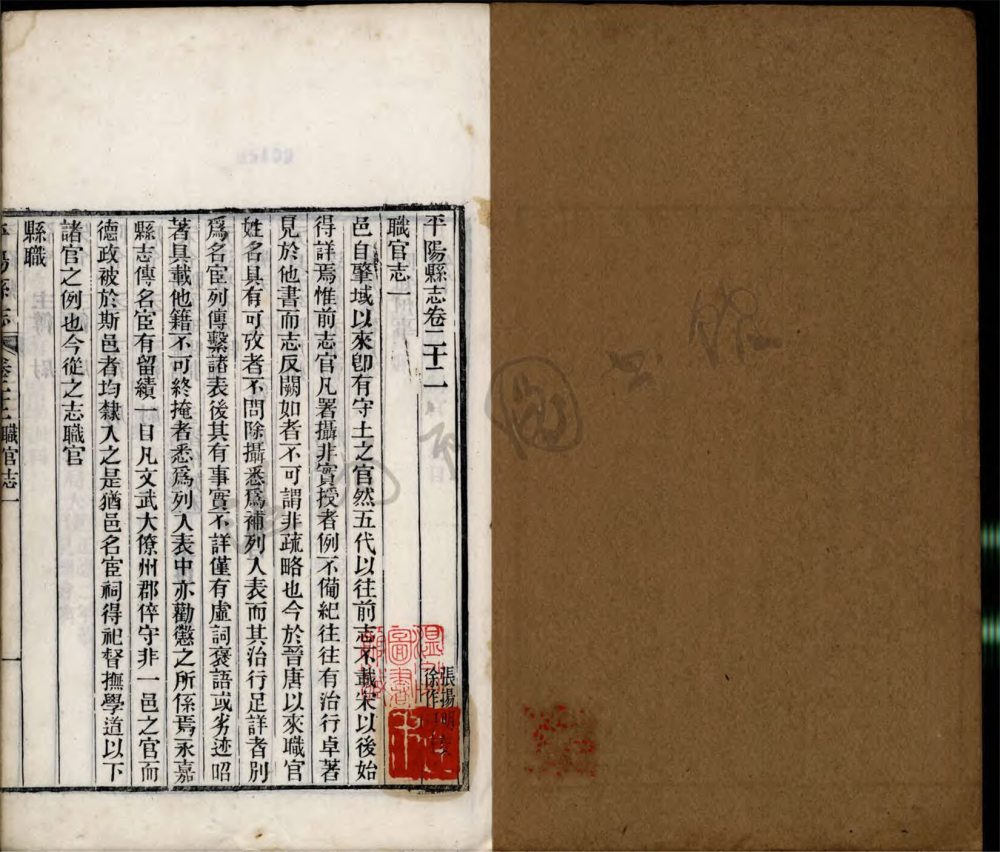 平陽縣志卷二十二
職官志一
邑自肇域以來卽有守土之官然五代以往前志不載宋以後始
得詳焉惟前志官凡署攝非實授者例不備紀往往有治行卓著
見於他書而志反闕如者不可謂非疏略也今於晉唐以來職官
姓名具有可攷者不問除攝悉爲補列入表而其治行足詳者別
爲名宦列傳繫諸表後其有事實不詳僅有虛詞褒語或劣迹昭
著具載他籍不可終掩者悉爲列入表中亦勸懲之所係焉永嘉
縣志傳名宦有留績一目凡文武大僚州郡倅守非一邑之官而
德政被於斯邑者均隸入之是猶邑名宦祠得祀督撫學道以下
諸官之例也今從之志職官
縣職
平陽縣志 卷二十二 職官志一 一